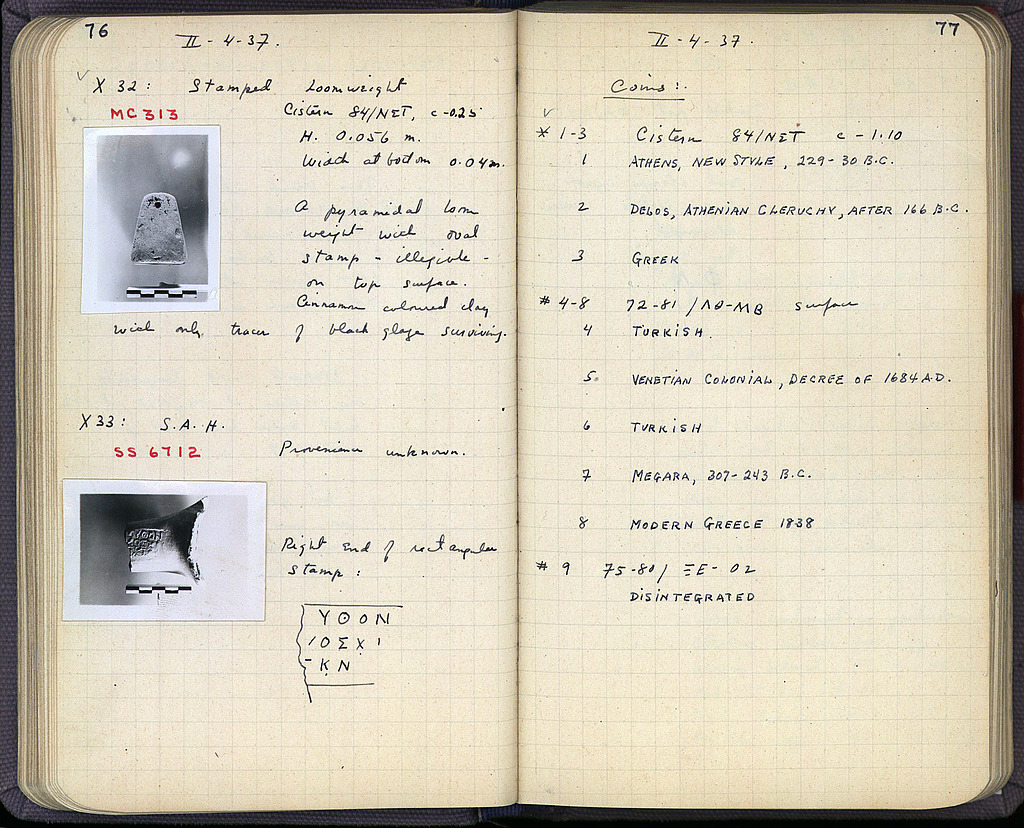 76
II - 4 - 37.
X 32 : Stamped Loomweight
MC 313
Cistern 84/ΝΣΤ, c -0.25
H. 0.056 m.
Width at bottom 0.04 m.
A pyramidal loom
weight with oval
stamp - illegible -
on top surface.
Cinnamon coloured clay
with only traces of black glaze surviving.
X 33 : S.A.H.
SS 6712
Provenience unknown.
Right end of rectangular
stamp :
ΥΘΟΝ
ΙΟΣΧΙ
ΚΝ
77
II - 4 - 37.
Coins :
* 1-3 Cistern 84/ΝΣΤ c - 1.10
1 ATHENS, NEW STYLE, 229-30 B.C.
2 DELOS, ATHENIAN CLERUCHY, AFTER 166 B.C.
3 GREEK
# 4-8 72-81 / ΛΘ-ΜΒ surface
4 TURKISH.
5. VENETIAN COLONIAL, DECREE OF 1684 A.D.
6 TURKISH
7 MEGARA, 307-243 B.C.
8 MODERN GREECE 1838
# 9 75-80 / ΞΕ - 02
DISINTEGRATED